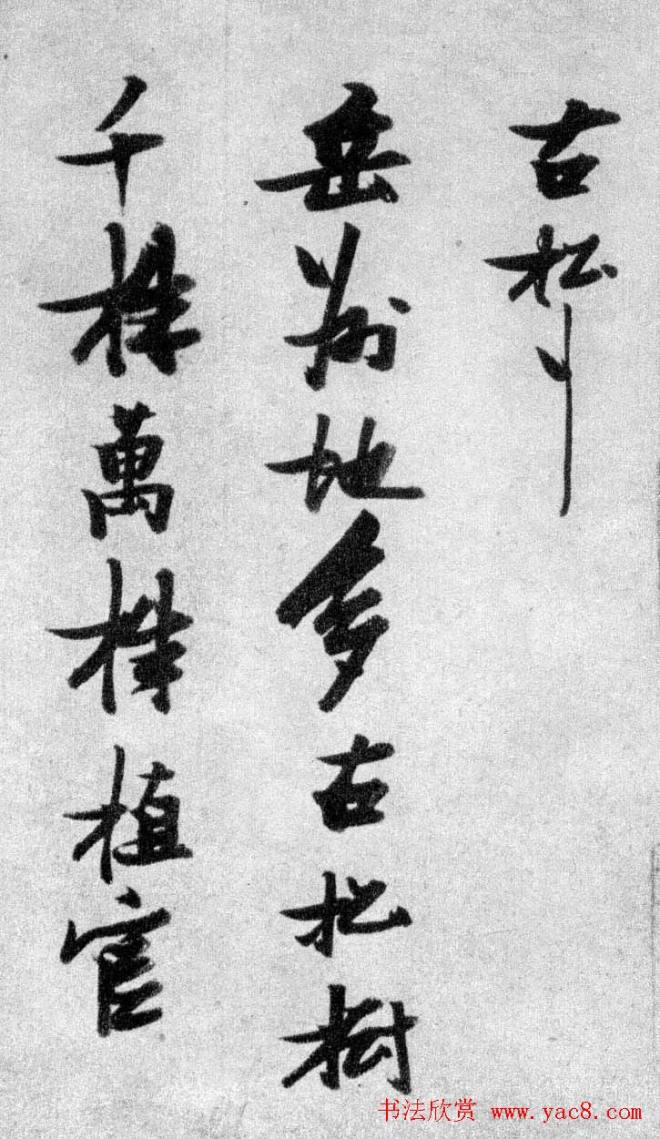 古松行
岳地多古松樹
千株萬株植官
书法欣赏 www.yac8.com